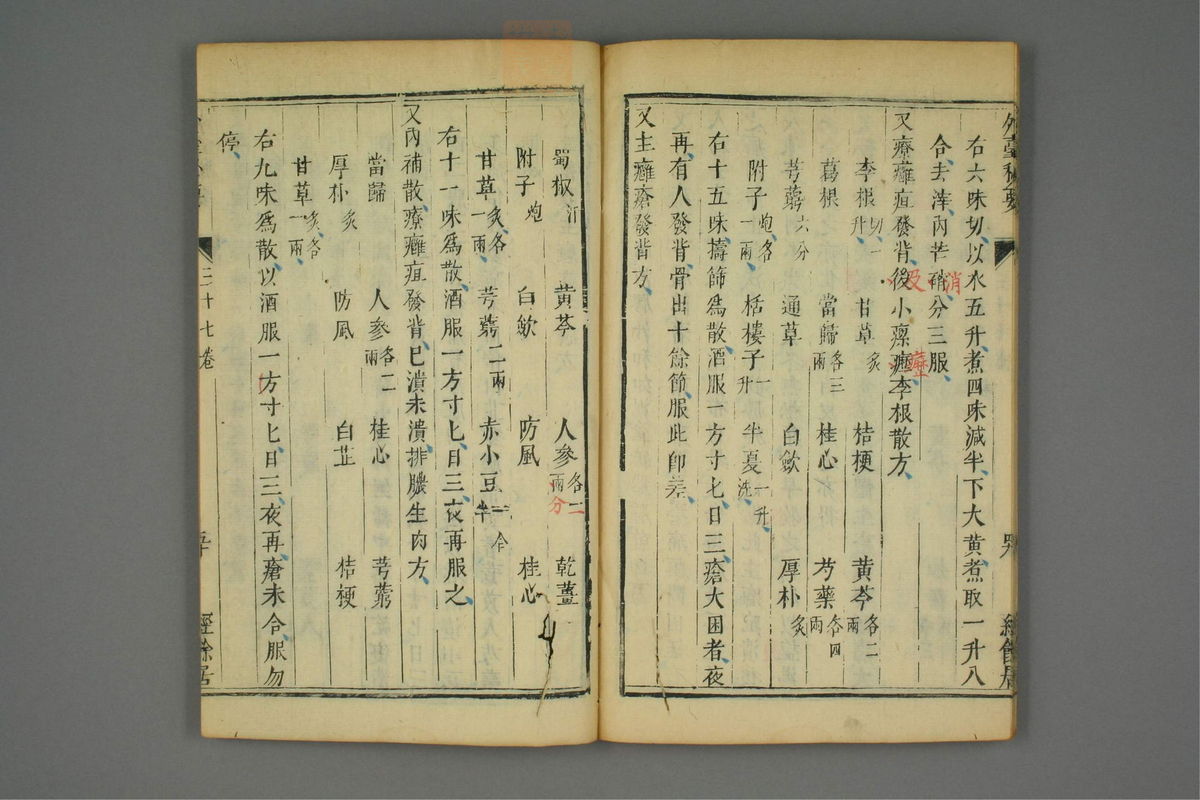 外臺秘要
右六味切以水五升煮四味減半下大黃煮取一升八
合去滓內芒硝分三服
消
又療癰疽發背後小瘰癧李根散方
及
李根切一升 甘草炙 桔梗 黃芩各二兩
葛根 當歸各三兩 桂心 芍藥各四兩
芎藭六分 通草 白歛 厚朴炙
附子炮各一兩 栝樓子一升 半夏一升洗
右十五味擣篩爲散酒服一方寸匕日三瘡大困者夜
再有人發背骨出十餘節服此卽差
又主癰瘡發背方
蜀椒汗 黃芩 人參各二兩 乾薑
二分
附子炮 白歛 防風 桂心
甘草炙各一兩 芎藭二兩 赤小豆一合半
右十一味爲散酒服一方寸匕日三夜再服之
又內補散療癰疽發背已潰未潰排膿生肉方
當歸 人參各二兩 桂心 芎藭
厚朴炙 防風 白芷 桔梗
甘草炙各一兩
右九味爲散以酒服一方寸匕日三夜再瘡未合服勿
停
二十七卷
五十
經餘居